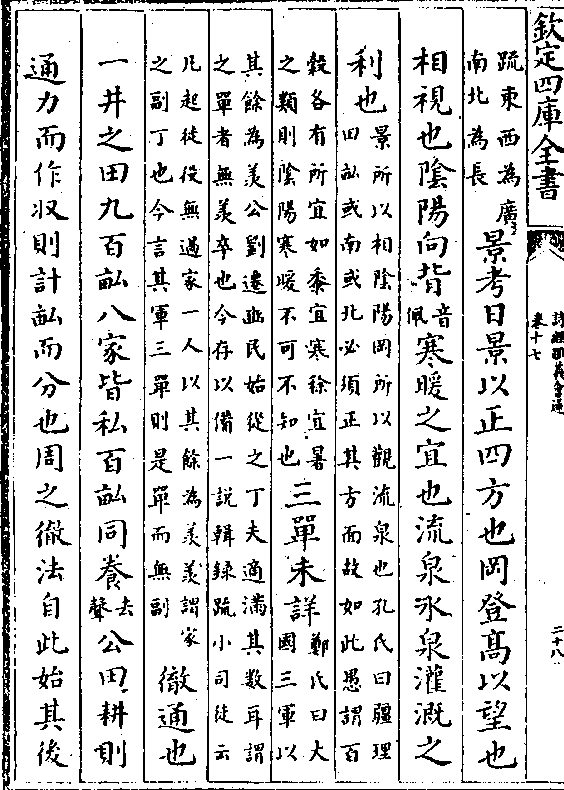 欽定四庫全書
詩經疏義會通
卷十七
二十八
疏東西為廣
南北為長
景考日景以正四方也岡登髙以望也
相視也隂陽向背
音
佩
寒暖之宜也流泉水泉灌溉之
利也
景所以相隂陽岡所以觀流泉也孔氏曰疆理
田畝或南或北必須正其方面故如此愚謂百
穀各有所宜如黍宜寒徐宜暑
之類則隂陽寒暖不可不知也
三單未詳
鄭氏曰大
國三軍以
其餘為羡公劉遷豳民始從之丁夫適滿其數耳謂
之單者無羡卒也今存以備一説輯録疏小司徒云
凡起徒役無過家一人以其餘為羡羡謂家
之副丁也今言其軍三單則是單而無副
徹通也
一井之田九百畝八家皆私百畝同養
去
聲
公田耕則
通力而作収則計畝而分也周之徹法自此始其後